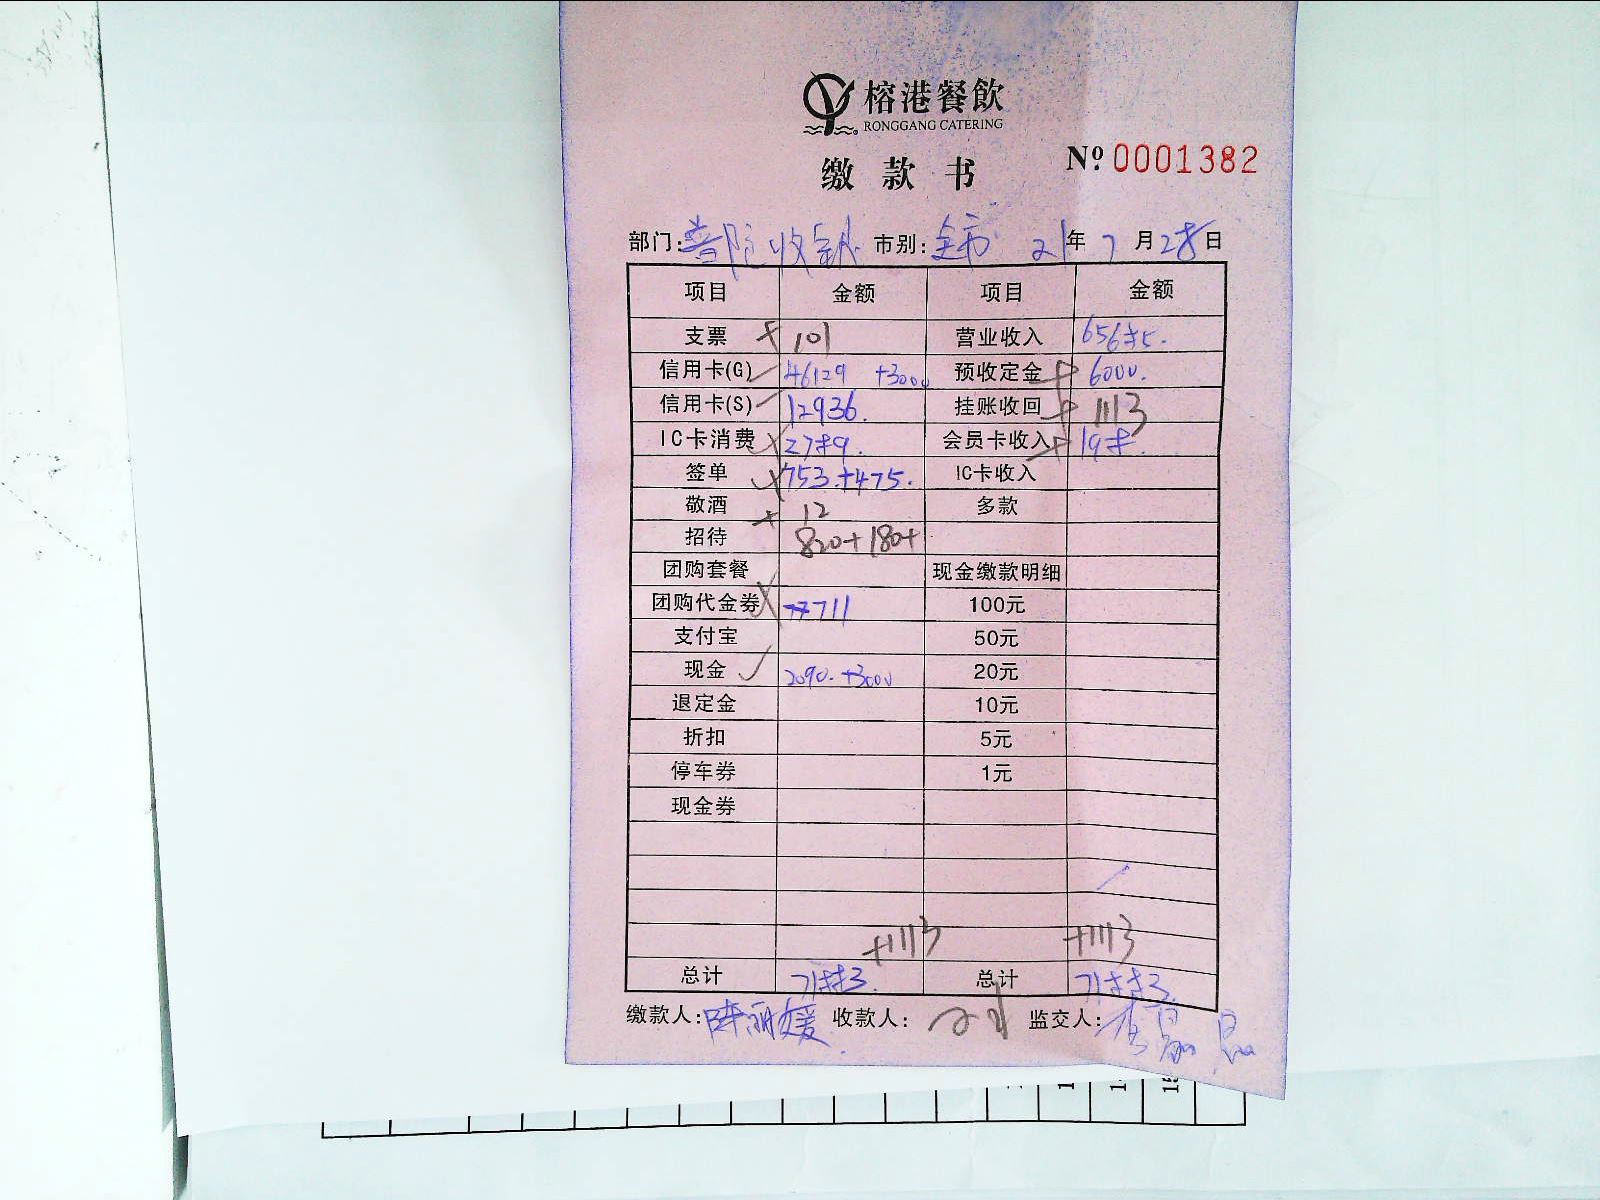 榕港餐飲
RONGGANG CATERING
缴款书
Nº 0001382
部门: 普陀收银 市别: 全市 21年 7月 28日
项目 金额 项目 金额
支票 101 营业收入 65685.
信用卡(G) 46129 +3000 预收定金 6000.
信用卡(S) 12936. 挂账收回 1113
IC卡消费 2789. 会员卡收入 198.
签单 753.+475. IC卡收入
敬酒 12 多款
招待 820+180+
团购套餐 现金缴款明细
团购代金券 711 100元
支付宝 50元
现金 2090.+3000 20元
退定金 10元
折扣 5元
停车券 1元
现金券
+1113 +1113
总计 71883. 总计 71883.
缴款人: 陈丽媛 收款人: 监交人: